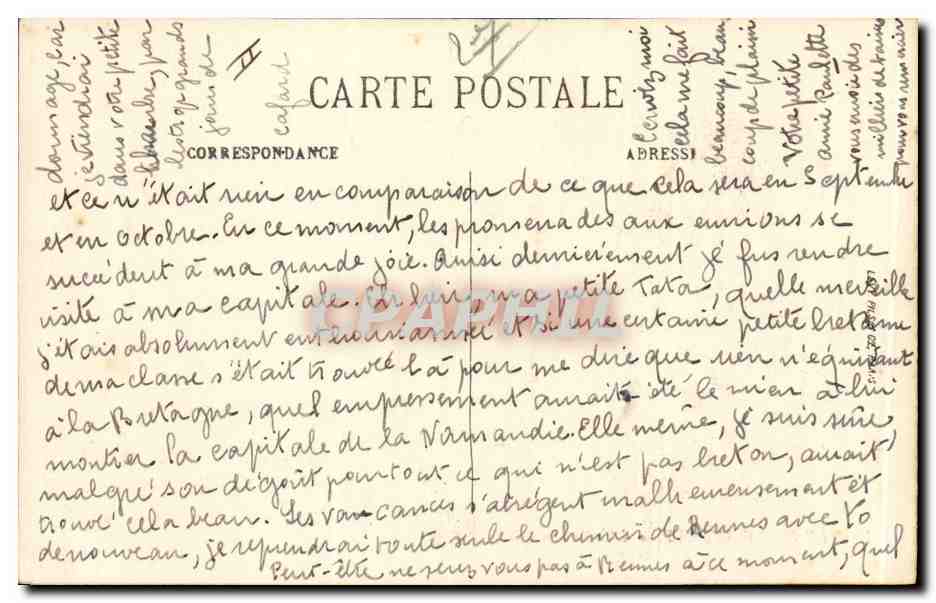 II
CARTE POSTALE
CORRESPONDANCE
ADRESSE
et ce n'était rien en comparaison de ce que cela sera en Septembre
et en Octobre. En ce moment, les promenades aux environs se
succèdent à ma grande joie. Ainsi dernièrement je fus rendre
visite à ma capitale. Eh bien, ma petite Tata, quelle merveille
j'étais absolument enthousiasmée et si une certaine petite bretonne
de ma classe s'était trouvée là pour me dire que rien n'équivaut
à la Bretagne, quel empressement aurait été le mien à lui
montrer la capitale de la Normandie. Elle même, je suis sûre
malgré son dégoût pour tout ce qui n'est pas breton, aurait
trouvé cela beau. Les vacances s'abrègent malheureusement et
de nouveau, je reprendrai toute seule le chemin de Rennes avec
Peut-être ne serez vous pas à Rennes à ce moment, quel
dommage, car
je viendrai
dans votre petite
chambre, par
les trop grands
jours de
cafard
Ecrivez moi
cela me fait
beaucoup, beau
coup de plaisir
Votre petite
amie Paulette
vous envoie des
milliers de baisers
pour vous
CPAPHIL